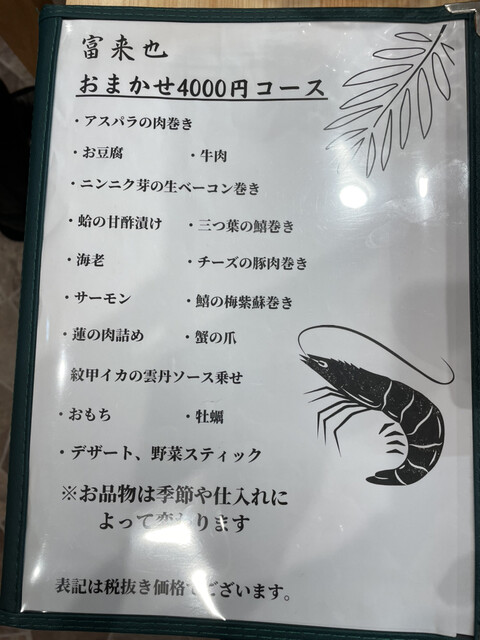 富来也
おまかせ4000円コース
・アスパラの肉巻き
・お豆腐 ・牛肉
・ニンニク芽の生ベーコン巻き
・蛤の甘酢漬け ・三つ葉の鱚巻き
・海老 ・チーズの豚肉巻き
・サーモン ・鱚の梅紫蘇巻き
・蓮の肉詰め ・蟹の爪
紋甲イカの雲丹ソース乗せ
・おもち ・牡蠣
・デザート、野菜スティック
※お品物は季節や仕入れに
よって変わります
表記は税抜き価格でございます。